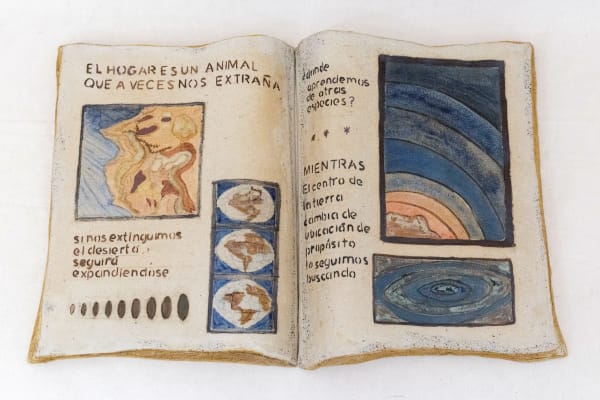 EL HOGAR ES UN ANIMAL
QUE A VECES NOS EXTRAÑA
si nos extinguimos
el desierto
seguirá
expandiendose
dónde
aprendemos
de otras
especies?
* * *
MIENTRAS
El centro de
la tierra
cambia de
ubicación de
propósito
lo seguimos
buscando